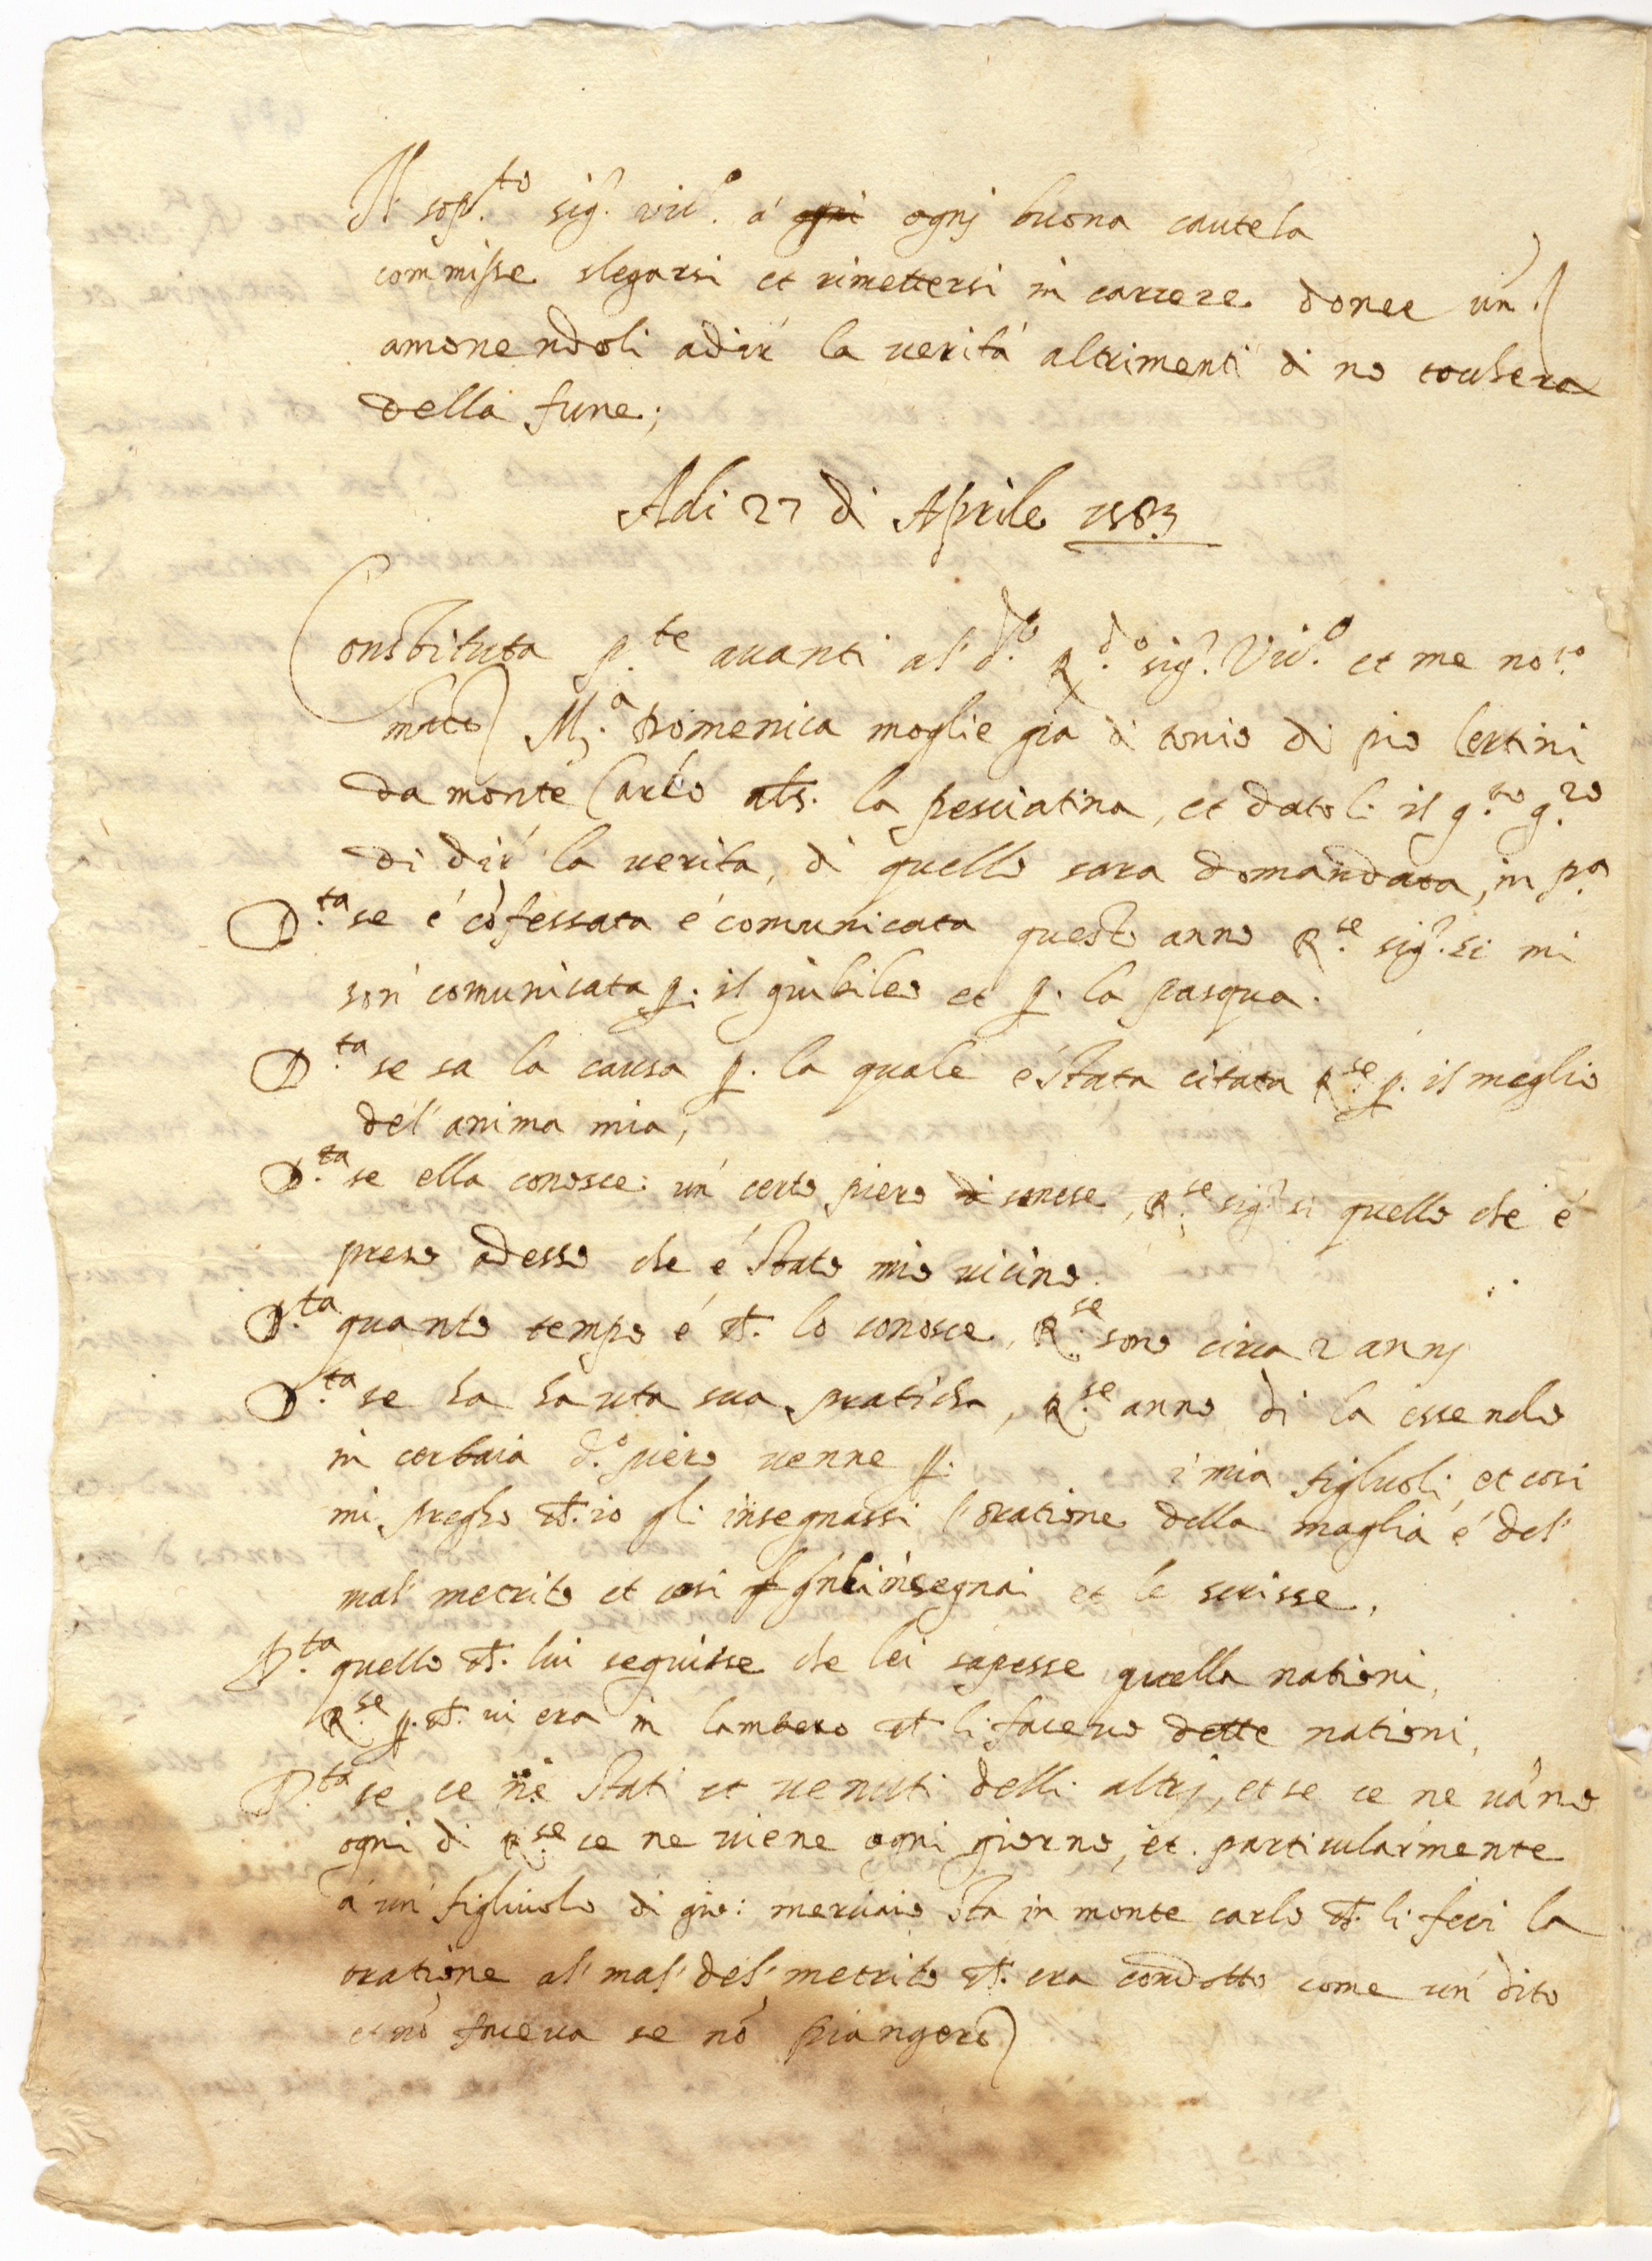 Il sop.to sig.r vic.o á ogni ognj buona cautela
commisse slegarsi et rimettersi in carcere donec
amonendoli adir la verità altrimenti di no
della fune;
Adi 27 di Aprile 1583
Constituta p.te avanti al d.o R.do sig.r Vic.o et me no.ro
M.a Domenica moglie gia di tonio di pio lertini
da monte Carlo als. la pesciatina, et datoli il g.to g.ro
di dir la verita, di quello sara domandata, in p.a
D.ta se é cófessata é comunicata questo anno R.se sig.r si mi
son comunicata p. il giubileo et p. la pasqua.
D.ta se sa la causa p. la quale é stata citata R.se p. il meglio
del' anima mia,
D.ta se ella conosce un certo piero di sonese, R.se sig.r si quello che é
preso adesso che é stato mio vicino.
D.ta quanto tempo é ch. lo conosce, R.se sono circa 2 annj
D.ta se ha hauta sua praticha, R.se anno di la essendo
in cerbaia d.o piero venne p. i mia figluoli, et cosi
mi pregho ch. io gli insegnassi l'oratione della maglia é del'
mal' metrito et cosi gnli insegnai et le scrisse.
D.ta quello ch. lui seguisse che lei sapesse quella nationi,
R.se p. ch. vi era in lambero ch. li facevo dette nationi,
D.ta se ce né stati et venuti delli altrj, et se ce ne váno
ogni di R.se ce ne viene ogni giorno, et. particularmente
a un figliuolo di gio: merciaio sta in monte carlo ch. li feci la
oratione al' mal' del' metrito ch. era condotto come un' dito
et nó faceva se nó piangere